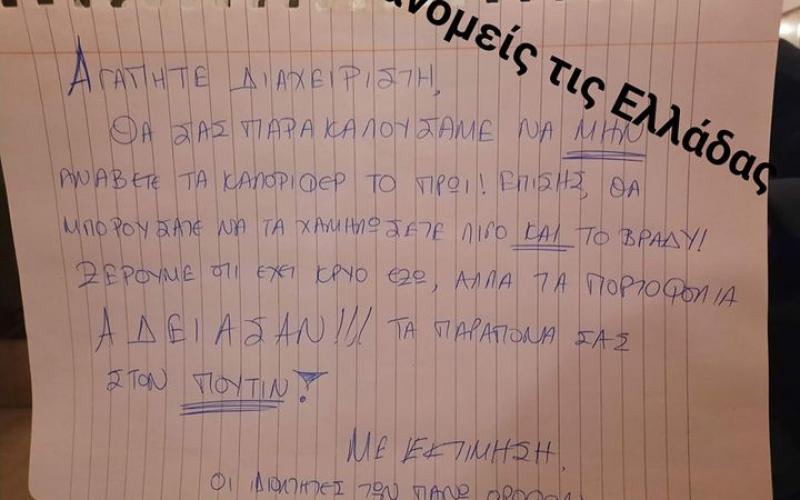 νομείς τις Ελλάδας
ΑΓΑΠΗΤΕ ΔΙΑΧΕΙΡΙΣΤΗ,
ΘΑ ΣΑΣ ΠΑΡΑΚΑΛΟΥΣΑΜΕ ΝΑ ΜΗΝ
ΑΝΑΒΕΤΕ ΤΑ ΚΑΛΟΡΙΦΕΡ ΤΟ ΠΡΩΙ! ΕΠΙΣΗΣ, ΘΑ
ΜΠΟΡΟΥΣΑΤΕ ΝΑ ΤΑ ΧΑΜΗΛΩΣΕΤΕ ΛΙΓΟ ΚΑΙ ΤΟ ΒΡΑΔΥ!
ΞΕΡΟΥΜΕ ΟΤΙ ΕΧΕΙ ΚΡΥΟ ΕΞΩ, ΑΛΛΑ ΤΑ ΠΟΡΤΟΦΟΛΙΑ
ΑΔΕΙΑΣΑΝ!!! ΤΑ ΠΑΡΑΠΟΝΑ ΣΑΣ
ΣΤΟΝ ΠΟΥΤΙΝ!
ΜΕ ΕΚΤΙΜΗΣΗ,
ΟΙ ΙΔΙΟΚΤΗΤΕΣ ΤΩΝ ΠΑΝΩ ΟΡΟΦΩΝ